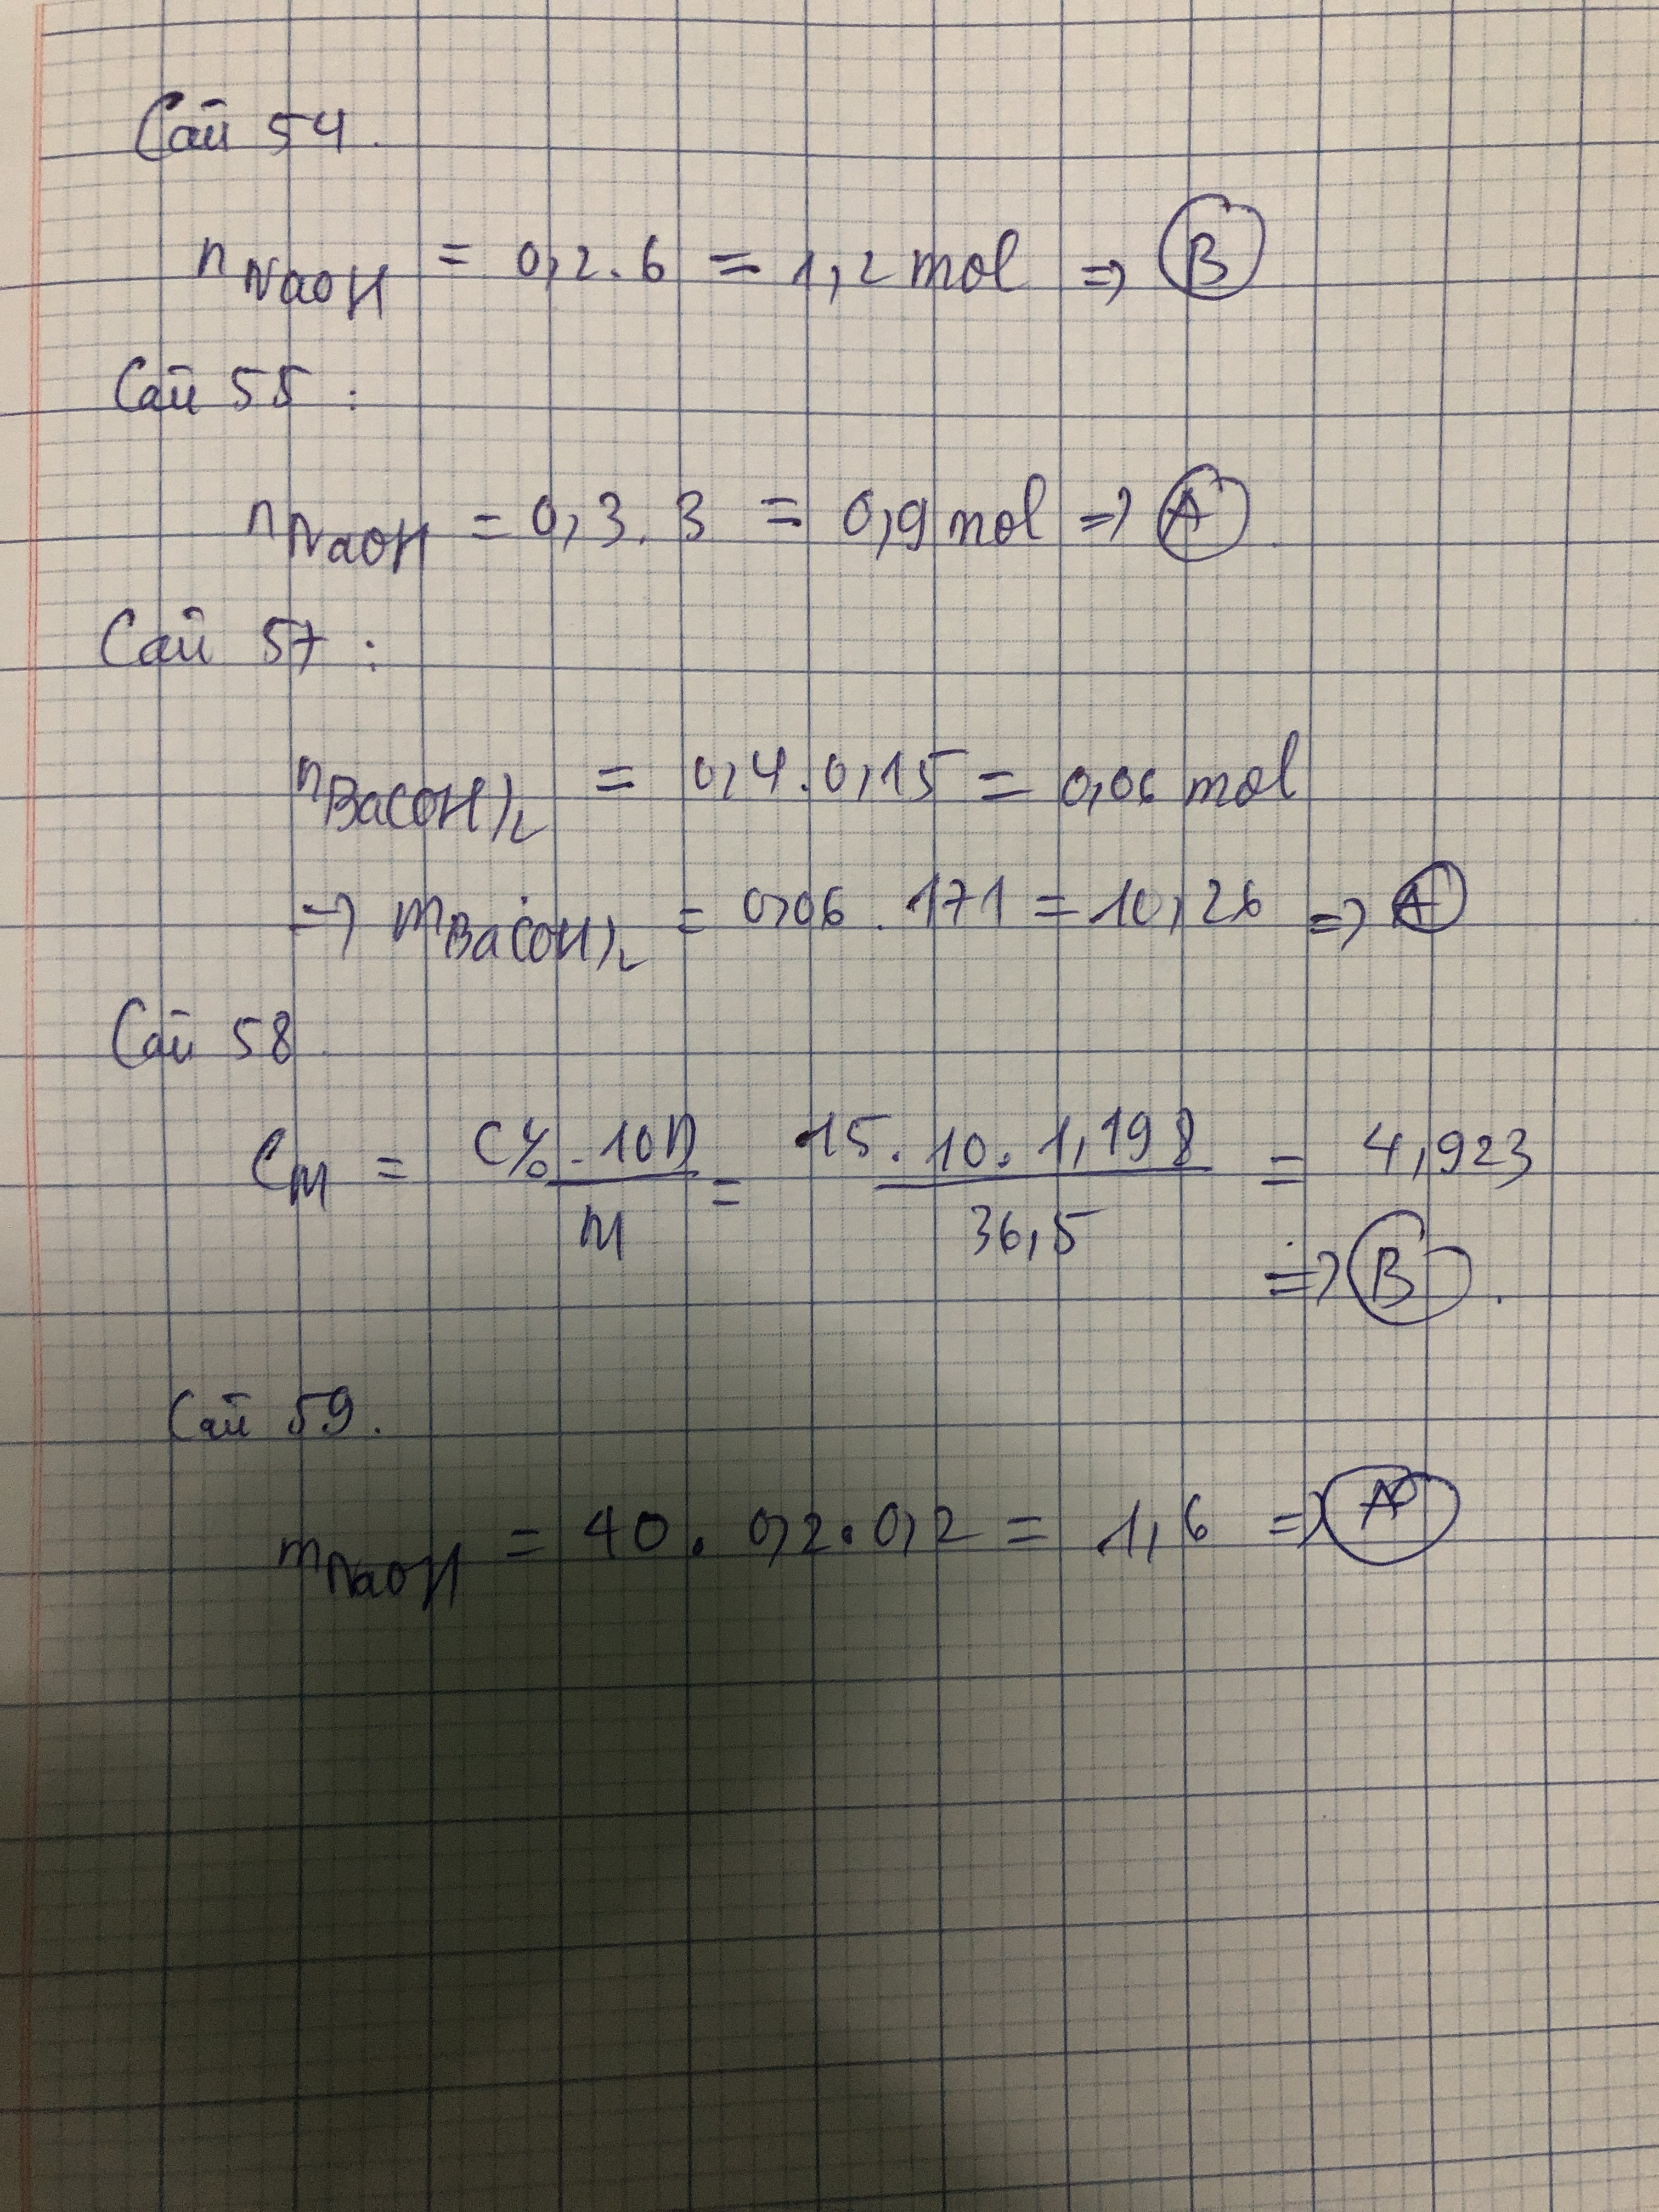 Câu 54.
nNaOH = 0,2.6 = 1,2 mol => B
Câu 55 :
nNaOH = 0,3.3 = 0,9 mol => A.
Câu 57 :
nBa(OH)2 = 0,4.0,15 = 0,06 mol
=> mBa(OH)2 = 0,06 . 171 = 10,26 => A
Câu 58.
CM = C%.10D / M = 15.10.1,198 / 36,5 = 4,923
=> B.
Câu 59.
mNaOH = 40.0,2.0,2 = 1,6 => A